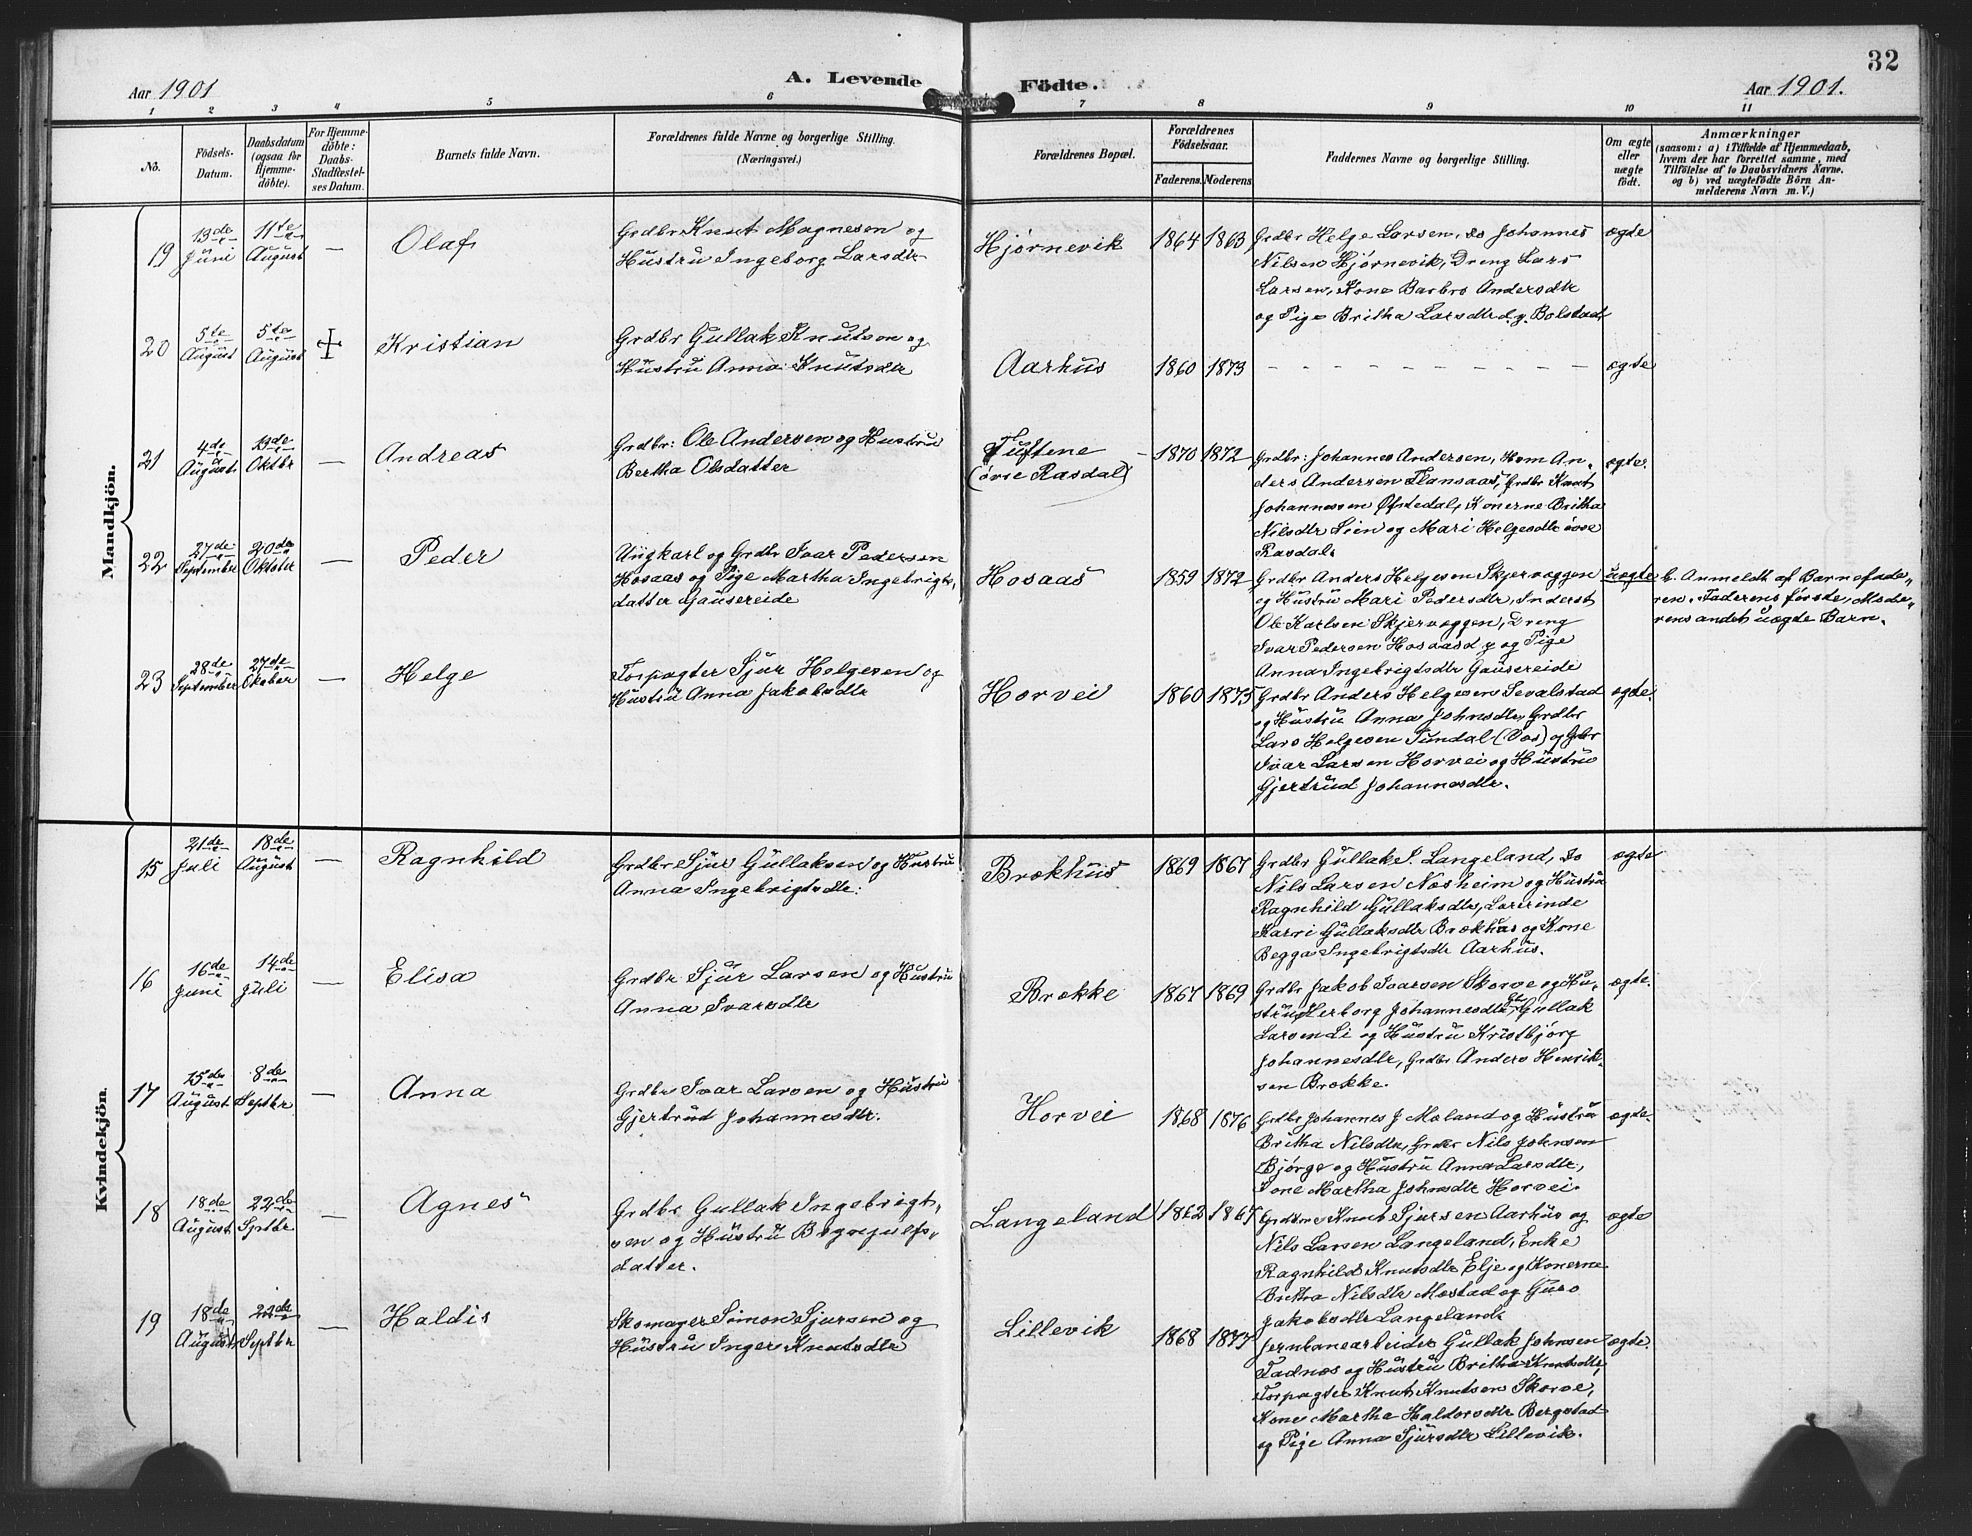 32
A. Levende Födte.
Aar 1901
Aar 1901.
1 2 3 4 5 6 7 8 9 10 11
No.
Födsels-
Datum.
Daabsdatum
(ogsaa for
Hjemme-
döbte).
For Hjemme-
döbte:
Daabs-
Stadfæstel-
ses Datum.
Barnets fulde Navn.
Forældrenes fulde Navne og borgerlige Stilling.
(Næringsvei.)
Forældrenes Bopæl.
Forældrenes
Födselsaar.
Faderens. Moderens
Faddernes Navne og borgerlige Stilling.
Om ægte
eller
uægte
födt.
Anmærkninger
(saasom: a) i Tilfælde af Hjemmedaab,
hvem der har forrettet samme, med
Tilföielse af to Daabsvidners Navne.
og b) ved uægtefödte Börn An-
melderens Navn m. V.)
Mandkjön.
19
13de
Juni
11te
August
—
Olaf
Grdbr Knut Magnesen og
Hustru Ingeborg Larsdtr
Hjørnevik
1864 1863
Grdbr Helge Larsen, do Johannes
Nilsen Hjørnevik, Dreng Lars
Larsen, Kone Barbro Andersdtr
og Pige Britha Larsdtr d.y. Bolstad.
ægte
20
5te
August
5te
August
Kristian
Grdbr Gullak Knutson og
Hustru Anna Knutsdtr
Aarhus
1860 1873
- - - - - - - - - -
ægte
21
4de
August
13de
Oktbr
—
Andreas
Grdbr: Ole Andersen og Hustru
Bertha Olsdatter
Tuftene
(øvre Rasdal)
1870 1872
Grdbr: Johannes Andersen, Hom An-
ders Andersen Flansaas, Grdbr Knut
Johannessen Øfstedal, Konerne Britha
Nilsdtr Lien og Mari Helgesdtr øvre
Rasdal.
ægte.
22
27de
September
20de
Oktober
—
Peder
Ungkarl og Grdbr Ivar Pedersen
Hosaas og Pige Martha Ingebrigts-
datter Gausereide
Hosaas
1859 1872
Grdbr Anders Helgesen Skjervæggen
og Hustru Mari Pedersdtr, Inderst
Ole Karlsen Skjervæggen, Dreng
Ivar Pedersen Hosaas d y og Pige
Anna Ingebrigtsdtr Gausereide
uægte
b. Anmeldt af Barnefade-
ren. Faderens første, Mode-
rens andet uægte Barn.
23
28de
September
27de
Oktober
—
Helge
Forpagter Sjur Helgesen og
Hustru Anna Jakobsdtr
Horvei
1860 1875
Grdbr Anders Helgesen Sevalstad
og Hustru Anna Johnsdtr, Grdbr
Lars Helgesen Sundal (Vos) og Grbr
Ivar Larsen Horvei og Hustru
Gjertrud Johannesdtr.
ægte.
Kvindekjön.
15
21de
Juli
18de
August
—
Ragnhild
Grdbr Sjur Gullaksen og Hustru
Anna Ingebrigtsdtr:
Brækhus
1869 1867
Grdbr Gullak I. Langeland, do
Nils Larsen Næsheim og Hustru
Ragnhild Gullaksdtr, Lærerinde
Karri Gullaksdtr Brækhus og Kone
Begga Ingebrigtsdtr Aarhus.
ægte
16
16de
Juni
14de
Juli
—
Elisa
Grdbr Sjur Larsen og Hustru
Anna Ivarsdtr
Brække
1867 1869
Grdbr Jakob Ivarsen Skorve og Hu-
stru Herborg Johannesdtr, Gullak
Larsen Li og Hustru Kristbjørg
Johannesdtr, Grdbr Anders Henrik-
sen Brække.
ægte.
17
15de
August
8de
Septbr
—
Anna
Grdbr Ivar Larsen og Hustru
Gjertrud Johannesdtr.
Horvei
1868 1876
Grdbr Johannes J Mæland og Hustru
Britha Nilsdtr, Grdbr Nils Johnsen
Bjørge og Hustru Anna Larsdtr,
Kone Martha Johnsdtr Horvei.
ægte.
18
18de
August
22de
Septbr
—
Agnes
Grdbr Gullak Ingebrigt-
sen og Hustru Brynjulfs-
datter.
Langeland
1862 1867
Grdbrne Knut Sjursen Aarhus og
Nils Larsen Langeland, Enke
Ragnhild Knutsdtr Elje og Konerne
Britha Nilsdtr Mæstad og Guro
Jakobsdtr Langeland.
ægte
19
18de
August
22de
Septbr
—
Haldis
Skomager Simon Sjursen og
Hustru Inger Knutsdtr
Lillevik
1868 1877
Jernbanearbeider Gullak Johnsen
Fadnes og Hustru Britha Knutsdtr,
Forpagter Knut Knutsen Skorve,
Kone Martha Haldorsdtr Bergstad
og Pige Anna Sjursdtr Lillevik.
ægte.